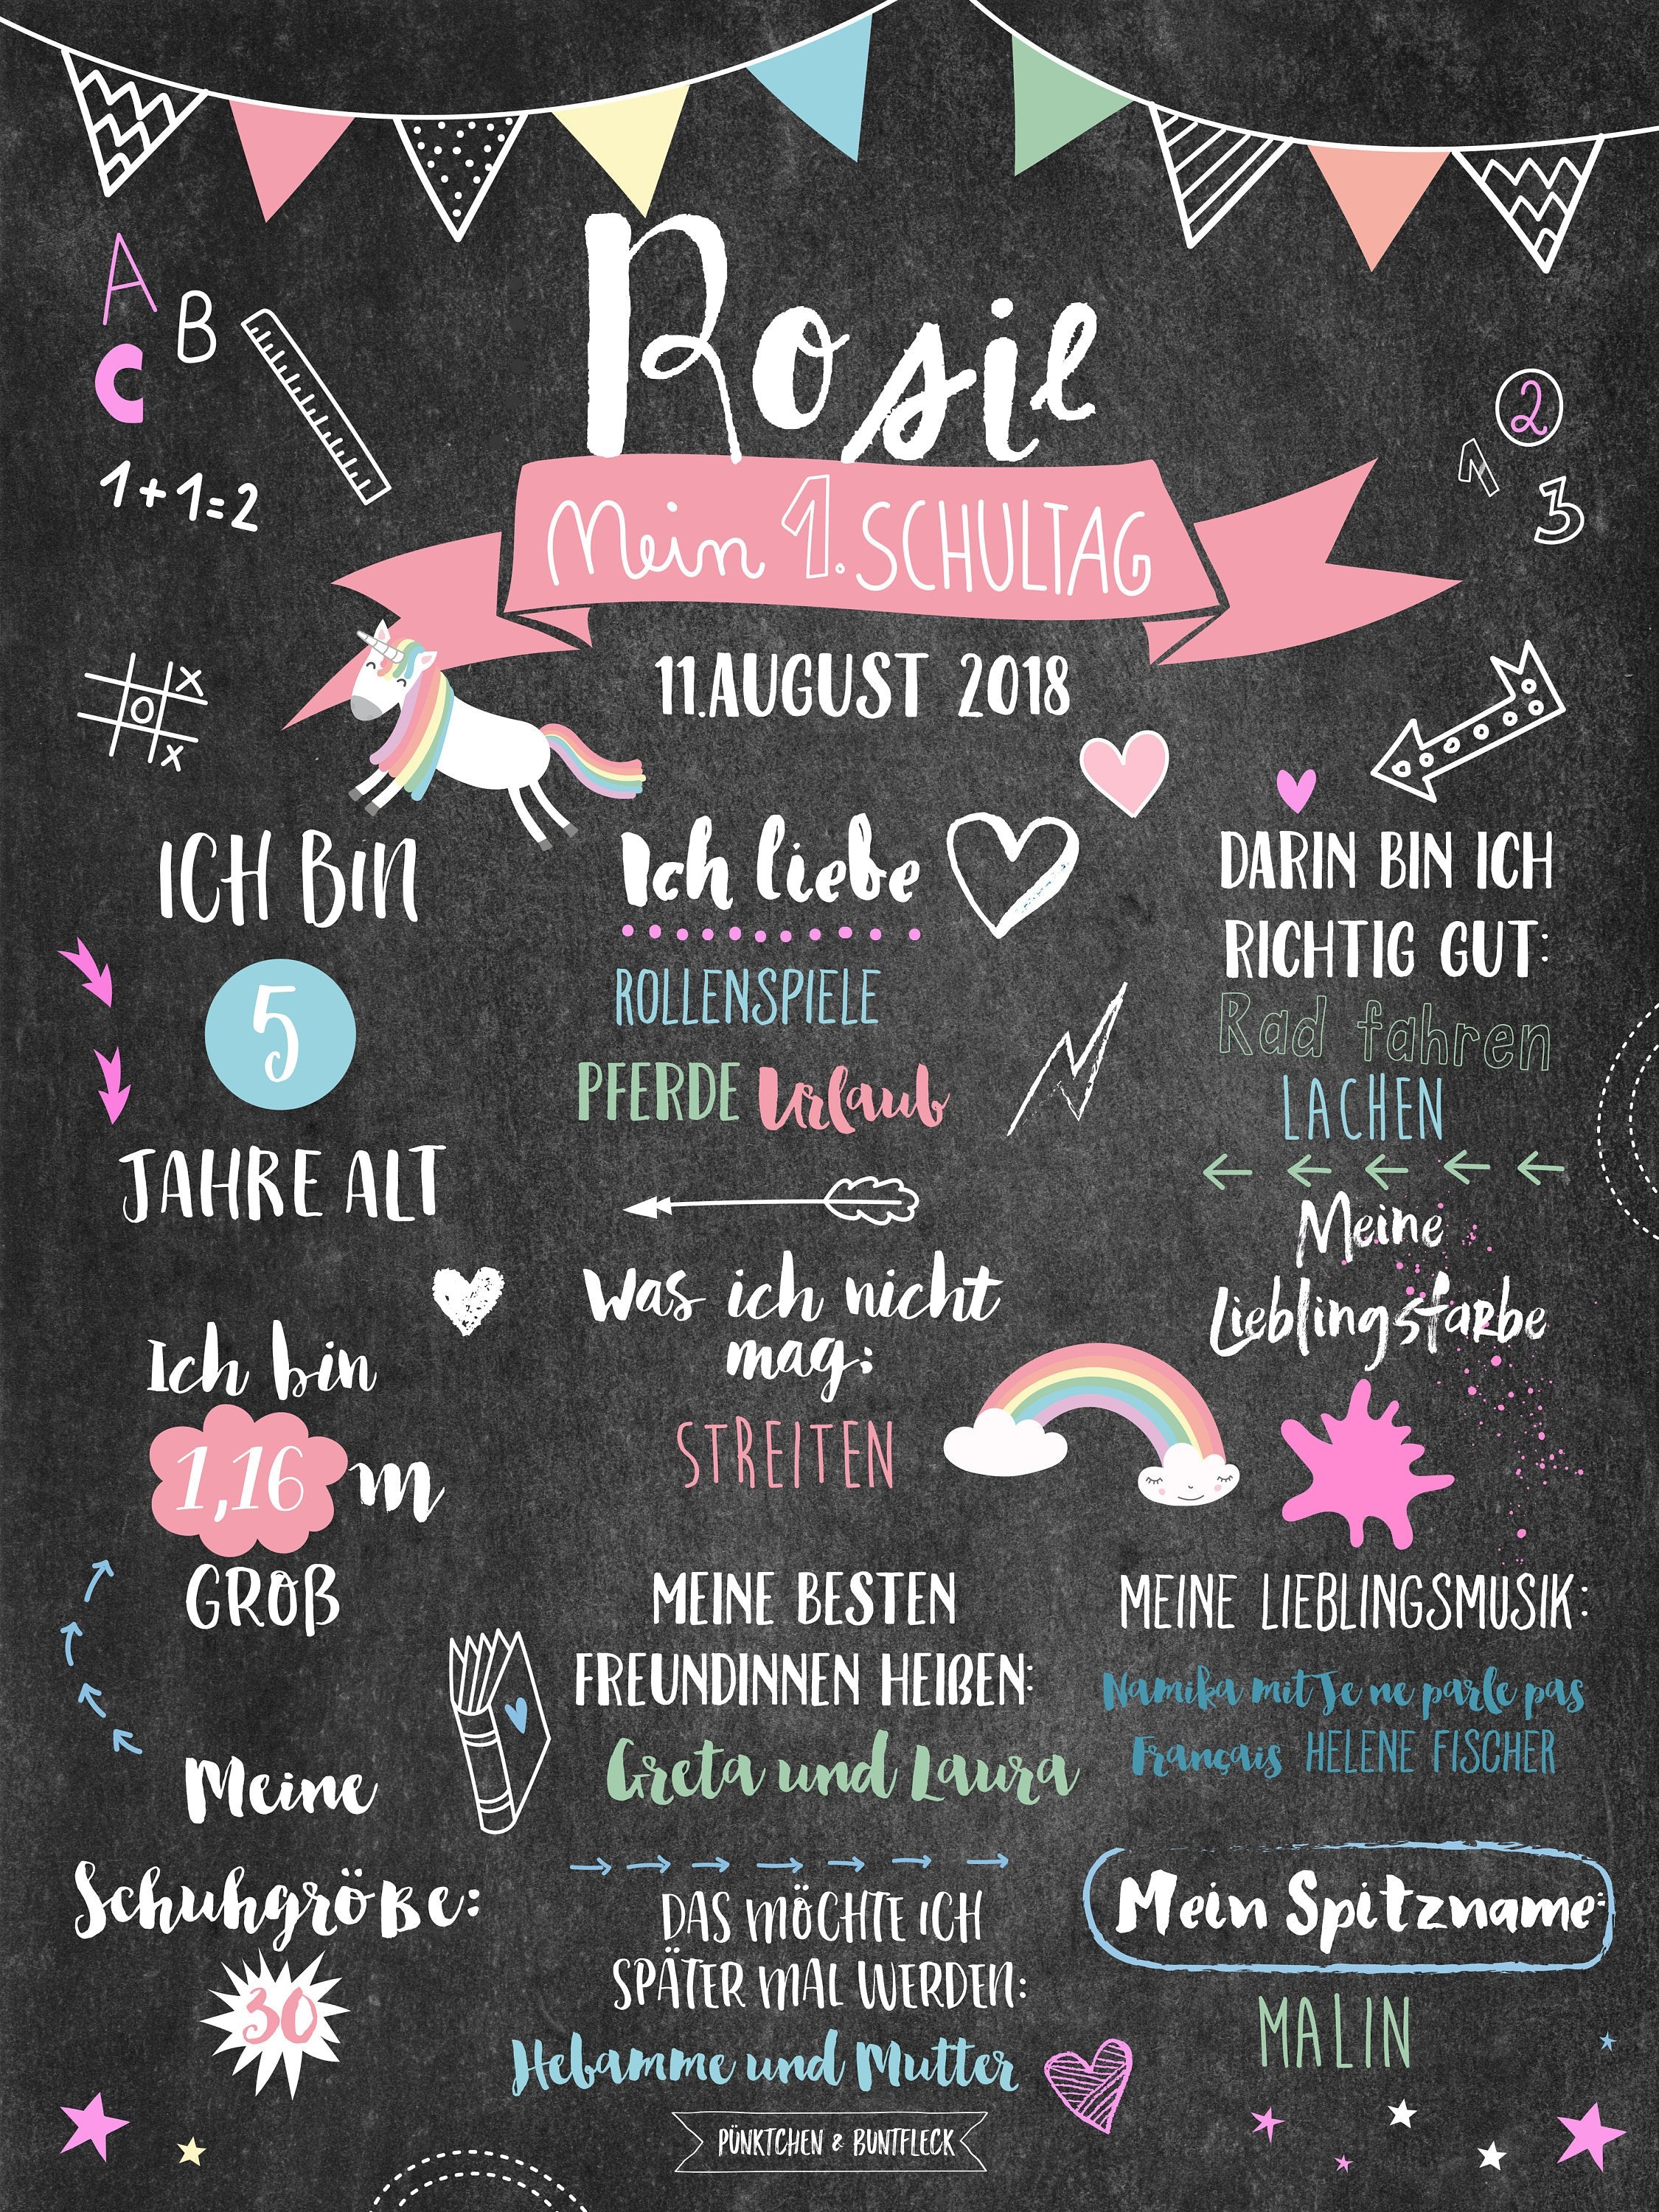 A
B
C
1+1=2
Rosie
2
1
3
Mein 1. SCHULTAG
11.AUGUST 2018
X
O
X
ICH BIN
5
JAHRE ALT
Ich bin
1,16 m
GROß
Meine
Schuhgröße:
30
Ich liebe
ROLLENSPIELE
PFERDE Urlaub
Was ich nicht
mag:
STREITEN
MEINE BESTEN
FREUNDINNEN HEIßEN:
Greta und Laura
DAS MÖCHTE ICH
SPÄTER MAL WERDEN:
Hebamme und Mutter
DARIN BIN ICH
RICHTIG GUT:
Rad fahren
LACHEN
Meine
Lieblingsfarbe
MEINE LIEBLINGSMUSIK:
Namika mit Je ne parle pas
Français HELENE FISCHER
Mein Spitzname:
MALIN
PÜNKTCHEN & BUNTFLECK